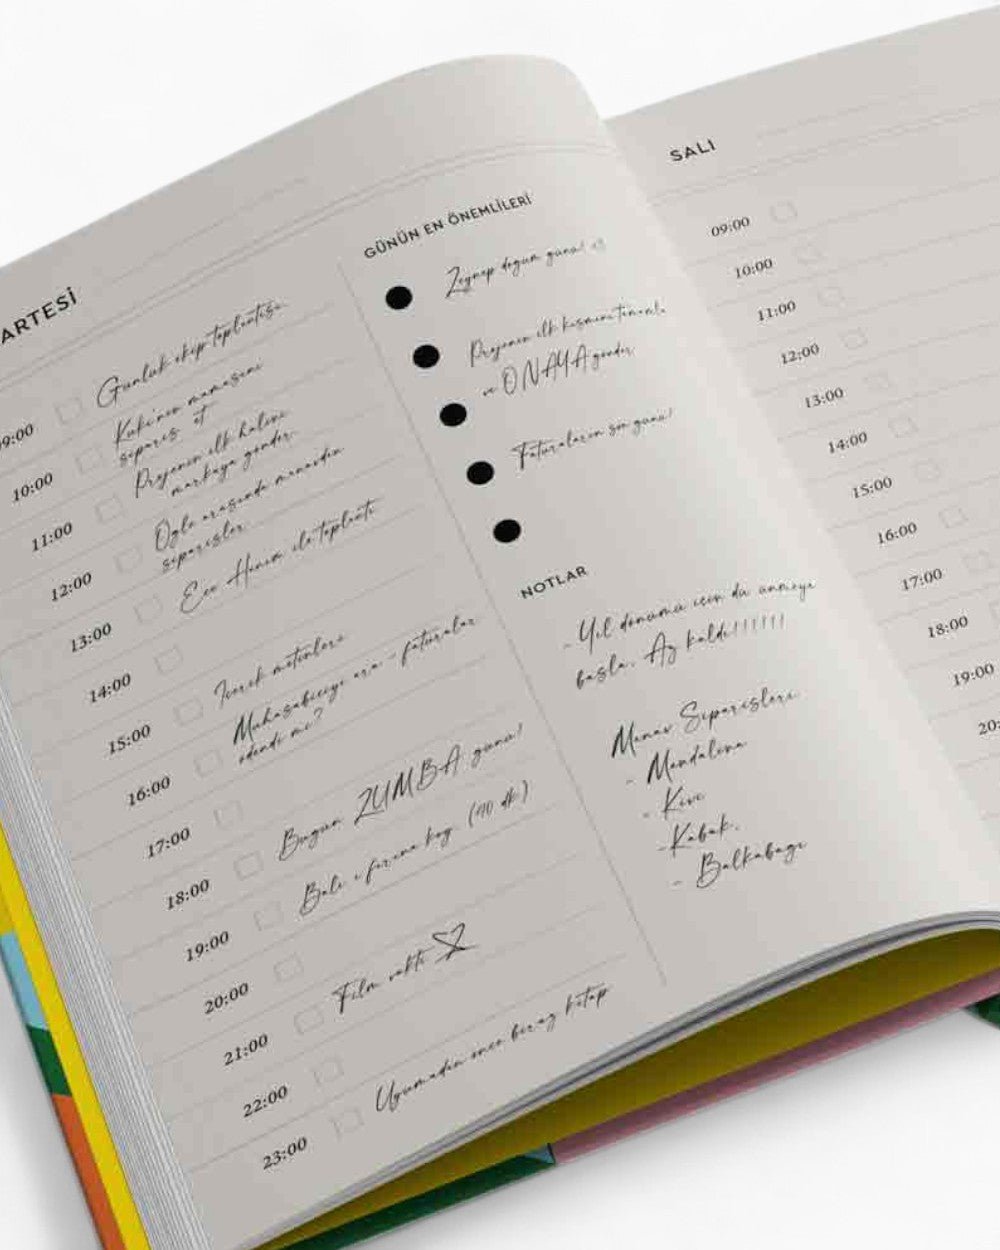 ARTESİ
09:00 Günlük ekip toplantısı
10:00 Kuki'nin mamasını
sipariş et
11:00 Projenin ilk halini
markaya gönder
12:00 Öğle arasında manavdan
siparişler
13:00 Ece Hanım ile toplantı
14:00
15:00 İçerik metinleri
16:00 Muhasabeciye ara - faturalar
ödendi mi?
17:00
18:00 Bugün ZUMBA günü!
19:00 Balı ı fırına koy (40 dk)
20:00
21:00 Film vakti
22:00
23:00 Uyumadan önce biraz kitap
GÜNÜN EN ÖNEMLİLERİ
Zeynep doğum günü!
Projenin ilk kısmını tamamla
ve ONAYA gönder
Faturaların son günü!
NOTLAR
- Yıl dönümü için düşünmeye
başla. Az kaldı!!!!!!!
Manav Siparişleri
- Mandalina
- Kivi
- Kabak,
- Balkabağı
SALI
09:00
10:00
11:00
12:00
13:00
14:00
15:00
16:00
17:00
18:00
19:00
20: